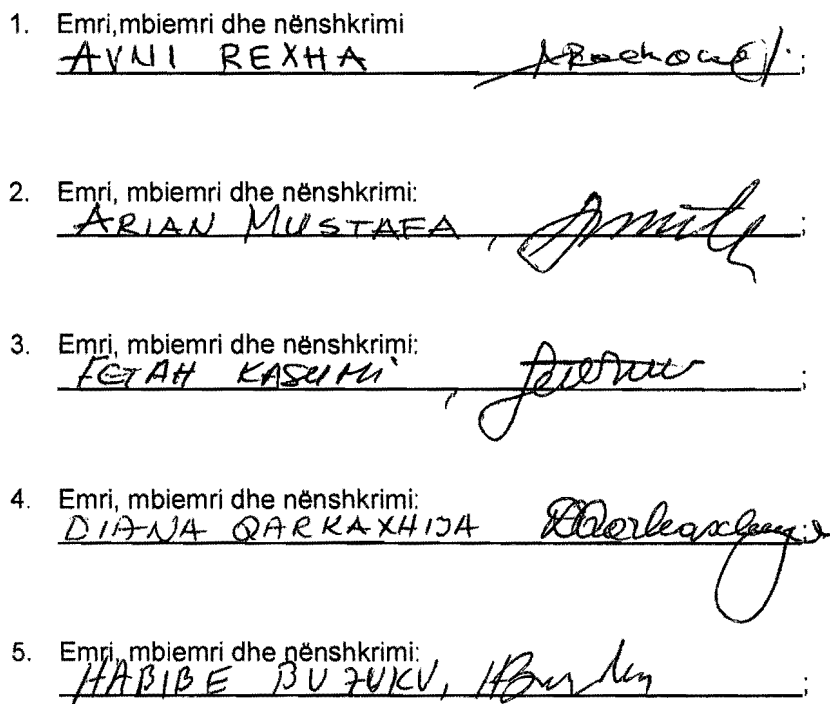 1. Emri,mbiemri dhe nënshkrimi
AVNI REXHA ;
2. Emri, mbiemri dhe nënshkrimi:
ARIAN MUSTAFA, ;
3. Emri, mbiemri dhe nënshkrimi:
FETAH KASUMI, ;
4. Emri, mbiemri dhe nënshkrimi:
DIANA QARKAXHIJA ;
5. Emri, mbiemri dhe nënshkrimi:
HABIBE BUZUKU, ;